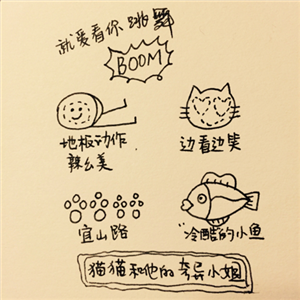 就爱看你跳舞
BOOM
地板动作
辣么美
边看边笑
宜山路
"冷酷的小鱼
猫猫和他的奇异小姐